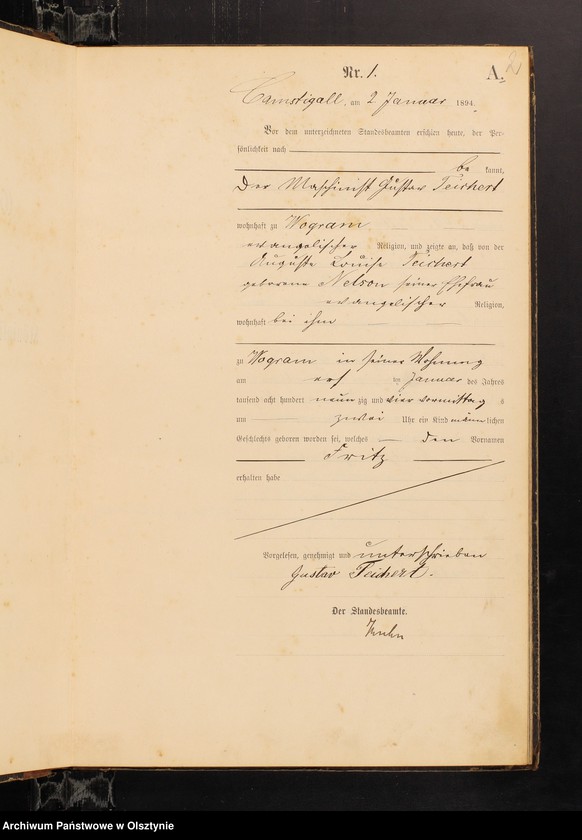 Nr. 1.
A.
Camstigall, am 2 Januar 1894.
Vor dem unterzeichneten Standesbeamten erschien heute, der Per-
sönlichkeit nach
be kannt,
der Maschinist Gustav Teichert
wohnhaft zu Wogram
evangelischer Religion, und zeigte an, daß von der
Auguste Louise Teichert
geborene Nelson seiner Ehefrau
evangelischer Religion,
wohnhaft bei ihm
zu Wogram in seiner Wohnung
am ersten Januar des Jahres
tausend acht hundert neunzig und vier vormittags
um zwei Uhr ein Kind männlichen
Geschlechts geboren worden sei, welches den Vornamen
Fritz
erhalten habe
Vorgelesen, genehmigt und unterschrieben
Gustav Teichert.
Der Standesbeamte.
Archiwum Państwowe w Olsztynie